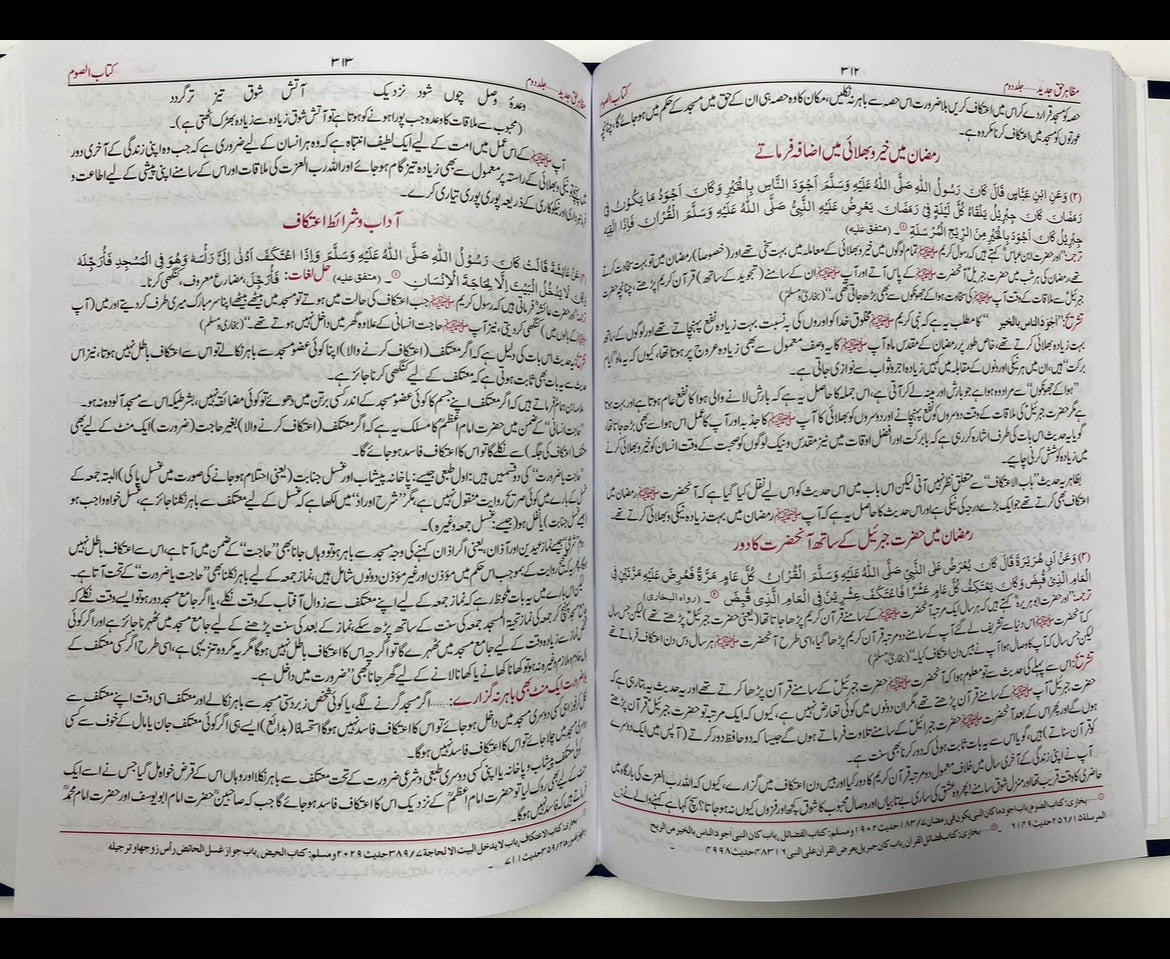 مظاہر حق جدید ..... جلد دوم
۳۱۲
کتاب الصوم
حصہ کو مسجد قرار دے کر اس میں اعتکاف کریں بلا ضرورت اس حصہ سے باہر نہ نکلیں، مکان کا وہ حصہ ہی ان کے حق میں مسجد کے حکم میں ہو جائے گا، چنانچہ
عورتوں کو مسجد میں اعتکاف کرنا مکروہ ہے۔
رمضان میں خیر و بھلائی میں اضافہ فرماتے
(۲) وَعَنِ ابْنِ عَبَّاسٍ قَالَ كَانَ رَسُولُ اللّٰهِ صَلَّى اللّٰهُ عَلَيْهِ وَسَلَّمَ أَجْوَدَ النَّاسِ بِالْخَيْرِ وَكَانَ أَجْوَدَ مَا يَكُوْنُ فِي
رَمَضَانَ كَانَ جِبْرِيْلُ يَلْقَاهُ كُلَّ لَيْلَةٍ فِيْ رَمَضَانَ يَعْرِضُ عَلَيْهِ النَّبِيُّ صَلَّى اللّٰهُ عَلَيْهِ وَسَلَّمَ الْقُرْاٰنَ فَإِذَا لَقِيَهُ
جِبْرِيْلُ كَانَ أَجْوَدَ بِالْخَيْرِ مِنَ الرِّيْحِ الْمُرْسَلَةِ۔ (متفق عليه)
ترجمہ: "اور حضرت ابن عباسؓ کہتے ہیں کہ رسول کریم ﷺ تمام لوگوں میں خیر و بھلائی کے معاملہ میں بہت سخی تھے اور (خصوصاً) رمضان میں تو بہت سخاوت کرتے
تھے، رمضان کی ہر شب میں حضرت جبریل آنحضرت ﷺ کے پاس آتے اور آپ ﷺ ان کے سامنے (تجوید کے ساتھ) قرآن کریم پڑھتے، چنانچہ حضرت
جبریل سے ملاقات کے وقت آپ ﷺ کی سخاوت ہوا کے جھونکوں سے بھی بڑھ جاتی تھی۔" (بخاری و مسلم)
تشریح: "أجود الناس بالخير" کا مطلب یہ ہے کہ نبی کریم ﷺ مخلوق خدا کو اوروں کی بہ نسبت بہت زیادہ نفع پہنچاتے تھے اور لوگوں کے ساتھ
بہت زیادہ بھلائی کرتے تھے، خاص طور پر رمضان کے مقدس ماہ آپ ﷺ کا یہ وصف معمول سے بھی زیادہ عروج پر ہوتا تھا، کیوں کہ یہ ماہ "ایام
برکت" ہیں، ان میں ہر نیکی اور دنوں کے مقابلہ میں کہیں زیادہ اجر و ثواب سے نوازی جاتی ہے۔
"ہوا کے جھونکوں" سے مراد وہ ہوا ہے جو بارش اور مینہ لے کر آتی ہے، اس جملہ کا حاصل یہ ہے کہ بارش لانے والی ہوا کا نفع عام ہوتا ہے اور بہت ہوتا
ہے مگر حضرت جبریل کی ملاقات کے وقت دوسروں کو نفع پہنچانے اور دوسروں کو بھلائی کا آپ ﷺ کا جذبہ اور آپ کا عمل اس ہوا سے بھی بڑھا ہوا تھا،
گویا یہ حدیث اس بات کی طرف اشارہ کر رہی ہے کہ بابرکت اور افضل اوقات میں نیز مقدس و نیک لوگوں کو صحبت کے وقت انسان کو خیر و بھلائی کرنے
میں زیادہ کوشش کرنی چاہیے۔
بظاہر یہ حدیث "باب الاعتکاف" سے متعلق نظر نہیں آتی لیکن اس باب میں اس حدیث کو اس لیے نقل کیا گیا ہے کہ آنحضرت ﷺ رمضان میں
اعتکاف بھی کرتے تھے جو ایک بڑے درجہ کی نیکی ہے اور اس حدیث کا حاصل یہ ہے کہ آپ ﷺ رمضان میں بہت زیادہ نیکی و بھلائی کرتے تھے۔
رمضان میں حضرت جبرئیل کے ساتھ آنحضرت کا دور
(۳) وَعَنْ أَبِيْ هُرَيْرَةَ قَالَ كَانَ يُعْرَضُ عَلَى النَّبِيِّ صَلَّى اللّٰهُ عَلَيْهِ وَسَلَّمَ الْقُرْاٰنُ كُلَّ عَامٍ مَرَّةً فَعُرِضَ عَلَيْهِ مَرَّتَيْنِ فِي
الْعَامِ الَّذِيْ قُبِضَ وَكَانَ يَعْتَكِفُ كُلَّ عَامٍ عَشْرًا فَاعْتَكَفَ عِشْرِيْنَ فِي الْعَامِ الَّذِيْ قُبِضَ۔ (رواه البخاري)
ترجمہ: "اور حضرت ابو ہریرہؓ کہتے ہیں کہ ہر سال ایک مرتبہ آنحضرت ﷺ کے سامنے قرآن کریم پڑھا جاتا تھا (یعنی حضرت جبریل پڑھتے تھے) لیکن جس سال
کہ آنحضرت ﷺ اس دنیا سے تشریف لے گئے آپ کے سامنے دو مرتبہ قرآن کریم پڑھا گیا، اسی طرح آنحضرت ﷺ ہر سال دس دن اعتکاف فرماتے تھے
لیکن جس سال کہ آپ کا وصال ہوا آپ نے بیس دن اعتکاف کیا۔" (بخاری و مسلم)
تشریح: اس سے پہلے کی حدیث سے تو معلوم ہوا کہ آنحضرت ﷺ حضرت جبرئیل کے سامنے قرآن پڑھا کرتے تھے اور یہ حدیث یہ بتا رہی ہے کہ
حضرت جبریل آپ ﷺ کے سامنے قرآن پڑھتے تھے مگر ان دونوں میں کوئی تعارض نہیں ہے، کیوں کہ ایک مرتبہ تو حضرت جبریل قرآن پڑھتے
ہوں گے اور پھر اس کے بعد آنحضرت ﷺ حضرت جبرائیل کے سامنے تلاوت فرماتے ہوں گے جیسا کہ دو حافظ دور کرتے (آپس میں ایک دوسرے
کو قرآن سناتے) ہیں، گویا اس سے یہ بات ثابت ہوئی کہ دور کرنا بھی سنت ہے۔
آپ نے اپنی زندگی کے آخری سال میں خلاف معمول دو مرتبہ قرآن کریم کا دور کیا اور بیس دن اعتکاف میں گزارے، کیوں کہ اللہ رب العزت کی بارگاہ میں
حاضری کا وقت قریب تھا اور منزل شوق سامنے! پھر وہ عشق کی ساری بے تابیاں اور وصال محبوب کا شوق کچھ اور فزوں کیوں نہ ہو جاتا؟ سچ کہا ہے کہنے والے نے:
بخاری: کتاب الصوم، باب أجود ما كان النبي يكون في رمضان ۱۸۳/۷ حدیث ۱۹۰۲ ومسلم: کتاب الفضائل، باب كان النبي أجود الناس بالخير من الريح
المرسلة ۲۵۶/۱۵ حدیث ۶۱۴۹ بخاری: کتاب فضائل القرآن، باب كان جبريل يعرض القرآن على النبي ۴۸۳۱۶ حدیث ۴۹۹۸
مظاہر حق جدید ..... جلد دوم
۳۱۳
کتاب الصوم
وعدۂ وصل چوں شود نزدیک آتش شوق تیز تر گردد
(محبوب سے ملاقات کا وعدہ جب پورا ہونے کو ہوتا ہے تو آتش شوق زیادہ سے زیادہ بھڑک اٹھتی ہے)۔
آپ ﷺ کے اس عمل میں امت کے لیے ایک لطیف انتباہ ہے کہ وہ ہر انسان کے لیے ضروری ہے کہ جب وہ اپنی زندگی کے آخری دور
میں پہنچے تو نیکی و بھلائی کے راستہ پر معمول سے بھی زیادہ تیز گام ہو جائے اور اللہ رب العزت کی ملاقات اور اس کے سامنے اپنی پیشی کے لیے اطاعت و
فرمانبرداری اور نیکو کاری کے ذریعہ پوری پوری تیاری کرے۔
آداب و شرائط اعتکاف
عَنْ عَائِشَةَ قَالَتْ كَانَ رَسُوْلُ اللّٰهِ صَلَّى اللّٰهُ عَلَيْهِ وَسَلَّمَ إِذَا اعْتَكَفَ أَدْنٰى إِلَيَّ رَأْسَهُ وَهُوَ فِي الْمَسْجِدِ فَأُرَجِّلُهُ
وَكَانَ لَا يَدْخُلُ الْبَيْتَ إِلَّا لِحَاجَةِ الْإِنْسَانِ۔ (متفق عليه) حل لغات: فَأُرَجِّلُ، مضارع معروف، کنگھی کرنا۔
ترجمہ: "اور حضرت عائشہؓ فرماتی ہیں کہ رسول کریم ﷺ جب اعتکاف کی حالت میں ہوتے تو مسجد میں بیٹھے بیٹھے اپنا سر مبارک میری طرف کر دیتے اور میں (آپ
ﷺ کے بالوں میں) کنگھی کر دیتی، نیز آپ ﷺ حاجت انسانی کے علاوہ گھر میں داخل نہیں ہوتے تھے۔" (بخاری و مسلم)
تشریح: یہ حدیث اس بات کی دلیل ہے کہ اگر معتکف (اعتکاف کرنے والا) اپنا کوئی عضو مسجد سے باہر نکالے تو اس سے اعتکاف باطل نہیں ہوتا، نیز اس
حدیث سے یہ بات بھی ثابت ہوتی ہے کہ معتکف کے لیے کنگھی کرنا جائز ہے۔
علامہ ابن ہمام فرماتے ہیں کہ اگر معتکف اپنے جسم کا کوئی عضو مسجد کے اندر کسی برتن میں دھوئے تو کوئی مضائقہ نہیں، بشرطیکہ اس سے مسجد آلودہ نہ ہو۔
"حاجت انسانی" کے ضمن میں حضرت امام اعظمؒ کا مسلک یہ ہے کہ اگر معتکف (اعتکاف کرنے والا) بغیر حاجت (ضرورت) ایک منٹ کے لیے بھی
معتکف (اعتکاف کی جگہ) سے نکلے گا تو اس کا اعتکاف فاسد ہو جائے گا۔
"حاجت یا ضرورت" کی دو قسمیں ہیں: اول طبعی جیسے: پاخانہ، پیشاب اور غسل جنابت (یعنی احتلام ہو جانے کی صورت میں غسل پاکی) البتہ جمعہ کے
غسل کے بارے میں کوئی صریح روایت منقول نہیں ہے، مگر "شرح اوراد" میں لکھا ہے کہ غسل کے لیے معتکف سے باہر نکلنا جائز ہے، غسل خواہ واجب ہو
(جیسے غسل جنابت) یا نفل ہو (جیسے: غسل جمعہ وغیرہ)۔
دوم "شرعی" جیسے نماز عیدین اور آذان، یعنی اگر اذان کہنے کی وجہ مسجد سے باہر ہو تو وہاں جانا بھی "حاجت" کے ضمن میں آتا ہے، اس سے اعتکاف باطل نہیں
ہوگا، پھر یہ کہ صحیح روایت کے بموجب اس حکم میں مؤذن اور غیر مؤذن دونوں شامل ہیں، نماز جمعہ کے لیے باہر نکلنا بھی "حاجت یا ضرورت" کے تحت آتا ہے۔
لیکن اس بارے میں یہ بات ملحوظ رہے کہ نماز جمعہ کے لیے اپنے معتکف سے زوال آفتاب کے وقت نکلے، یا اگر جامع مسجد دور ہو تو ایسے وقت نکلے کہ
جامع مسجد پہنچ کر جمعہ کی نماز تحیۃ المسجد جمعہ کی سنت کے ساتھ پڑھ سکے، نماز کے بعد کی سنت پڑھنے کے لیے جامع مسجد میں ٹھہرنا جائز ہے اور اگر کوئی
شخص نماز سے زیادہ وقت کے لیے جامع مسجد میں ٹھہرے گا تو اگرچہ اس کا اعتکاف باطل نہیں ہوگا مگر یہ مکروہ تنزیہی ہے، اسی طرح اگر کسی معتکف کے
ہاں خادم و ملازم وغیرہ نہ ہو تو کھانا کھانے یا کھانا لانے کے لیے گھر جانا بھی "ضرورت" میں داخل ہے۔
بلا ضرورت ایک منٹ بھی باہر نہ گزارے:..... اگر مسجد گرنے لگے، یا کوئی شخص زبردستی مسجد سے باہر نکالے اور معتکف اسی وقت اپنے معتکف سے
نکل کر فوراً ہی کسی دوسری مسجد میں داخل ہو جائے تو اس کا اعتکاف فاسد نہیں ہوگا استحساناً (بدائع)، ایسے ہی اگر کوئی معتکف جان یا مال کے خوف سے کسی
دوسری مسجد میں چلا جائے تو اس کا اعتکاف فاسد نہیں ہوگا۔
کوئی معتکف پیشاب و پاخانہ یا اپنی کسی دوسری طبعی و شرعی ضرورت کے تحت معتکف سے باہر نکلا اور وہاں اس کے قرض خواہ مل گیا جس نے اسے ایک
منٹ کے لیے بھی روک لیا تو حضرت امام اعظمؒ کے نزدیک اس کا اعتکاف فاسد ہو جائے گا جب کہ صاحبین حضرت امام ابو یوسف اور حضرت امام محمدؒ
فرماتے ہیں کہ فاسد نہیں ہوگا۔
بخاری: کتاب الاعتکاف، باب لا يدخل البيت الا لحاجة ۳۸۹/۷ حدیث ۲۰۲۹ ومسلم: کتاب الحیض، باب جواز غسل الحائض رأس زوجها وترجيله
۳۵۹/۲ حدیث ۷۱۱